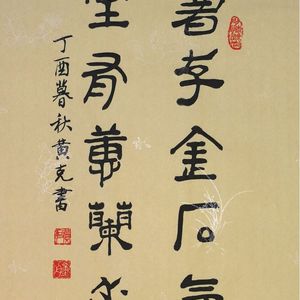 書存金石氣
室有蕙蘭香
丁酉暮秋黃克書